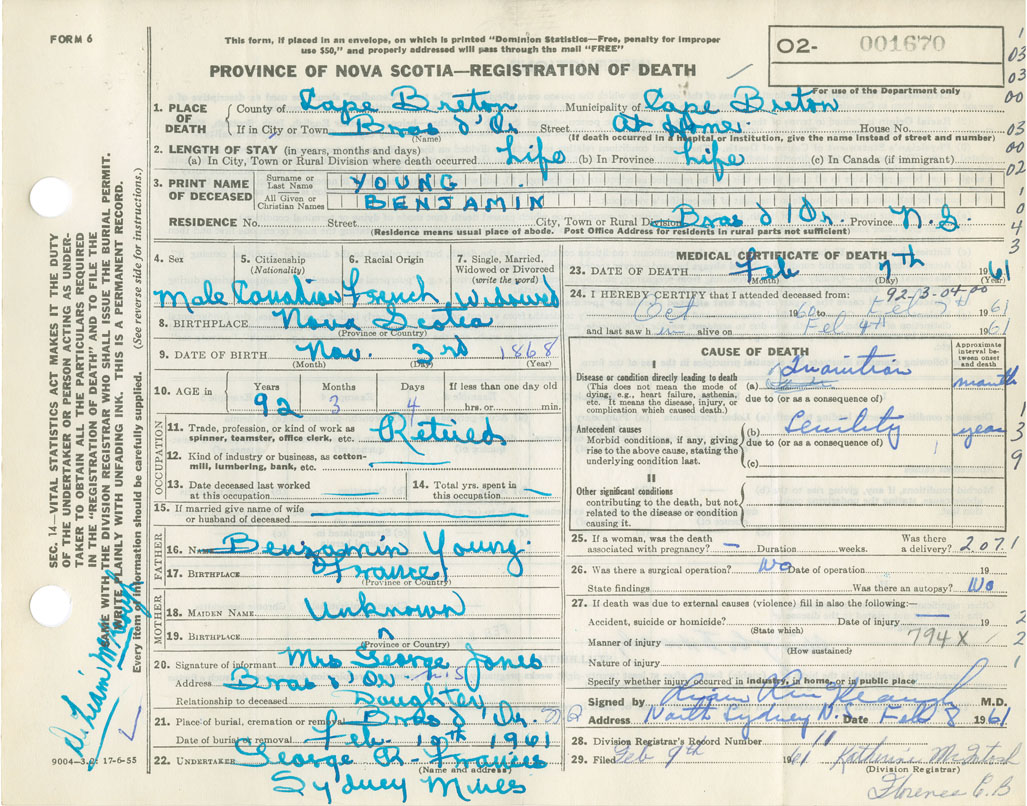 FORM 6
This form, if placed in an envelope, on which is printed "Dominion Statistics—Free, penalty for improper
use $50," and properly addressed will pass through the mail "FREE"
PROVINCE OF NOVA SCOTIA—REGISTRATION OF DEATH
O2- 001670
For use of the Department only
1. PLACE OF DEATH
County of Cape Breton Municipality of Cape Breton
If in City or Town Bras d'Or Street At Home House No.
(Name) (If death occurred in a hospital or institution, give the name instead of street and number)
2. LENGTH OF STAY (in years, months and days)
(a) In City, Town or Rural Division where death occurred Life (b) In Province Life (c) In Canada (if immigrant)
3. PRINT NAME OF DECEASED
Surname or Last Name YOUNG
All Given or Christian Names BENJAMIN
RESIDENCE No. Street City, Town or Rural Division Bras d'Or. Province N.S.
(Residence means usual place of abode. Post Office Address for residents in rural parts not sufficient)
4. Sex Male
5. Citizenship (Nationality) Canadian
6. Racial Origin French
7. Single, Married, Widowed or Divorced (write the word) Widowed
8. BIRTHPLACE Nova Scotia
(Province or Country)
9. DATE OF BIRTH Nov. 3rd 1868
(Month) (Day) (Year)
10. AGE in Years Months Days If less than one day old
92 3 4 hrs. or min.
OCCUPATION
11. Trade, profession or kind of work as
spinner, teamster, office clerk, etc. Retired
12. Kind of industry or business, as cotton-
mill, lumbering, bank, etc.
13. Date deceased last worked
at this occupation
14. Total yrs. spent in
this occupation
15. If married give name of wife
or husband of deceased
FATHER
16. Name Benjamin Young.
17. BIRTHPLACE France
(Province or Country)
MOTHER
18. MAIDEN NAME Unknown
19. BIRTHPLACE
(Province or Country)
20. Signature of informant Mrs George Jones
Address Bras d'Or N.S
Relationship to deceased Daughter
21. Place of burial, cremation or removal Bras d'Or.
Date of burial or removal Feb. 10th 1961
22. UNDERTAKER George R. Francis
(Name and address)
Sydney Mines
9004-3.C: 17-6-55
MEDICAL CERTIFICATE OF DEATH
23. DATE OF DEATH Feb 7th 1961
(Month) (Day) (Year)
92-3-04-00
24. I HEREBY CERTIFY that I attended deceased from:
Oct 1960 to Feb 7 1961
and last saw him alive on Feb 4th 1961
CAUSE OF DEATH
Approximate interval between onset and death
I
Disease or condition directly leading to death
(This does not mean the mode of
dying, e.g., heart failure, asthenia,
etc. It means the disease, injury, or
complication which caused death.)
(a) Inanition month
due to (or as a consequence of)
Antecedent causes
Morbid conditions, if any, giving
rise to the above cause, stating the
underlying condition last.
(b) Senility year
due to (or as a consequence of)
(c)
II
Other significant conditions
contributing to the death, but not
related to the disease or condition
causing it.
25. If a woman, was the death
associated with pregnancy? Duration weeks. Was there
a delivery? 2071
26. Was there a surgical operation? No Date of operation 19
State findings Was there an autopsy? No
27. If death was due to external causes (violence) fill in also the following:
Accident, suicide or homicide? Date of injury 19
(State which)
Manner of injury 794X
(How sustained)
Nature of injury
Specify whether injury occurred in industry, in home, or in public place
Signed by M.D.
Address North Sydney N.S. Date Feb 8 1961
28. Division Registrar's Record Number 11
29. Filed Feb 9th 1961 Katherine McIntosh
(Division Registrar)
Florence C.B
SEC. 14—VITAL STATISTICS ACT MAKES IT THE DUTY
OF THE UNDERTAKER OR PERSON ACTING AS UNDER-
TAKER TO OBTAIN ALL THE PARTICULARS REQUIRED
IN THE "REGISTRATION OF DEATH" AND TO FILE THE
SAME WITH THE DIVISION REGISTRAR WHO SHALL ISSUE THE BURIAL PERMIT.
WRITE PLAINLY WITH UNFADING INK. THIS IS A PERMANENT RECORD.
Every item of information should be carefully supplied. (See reverse side for instructions.)
1
03
03
00
03
00
02
1
0
4
3
1
3
9
2
2
1